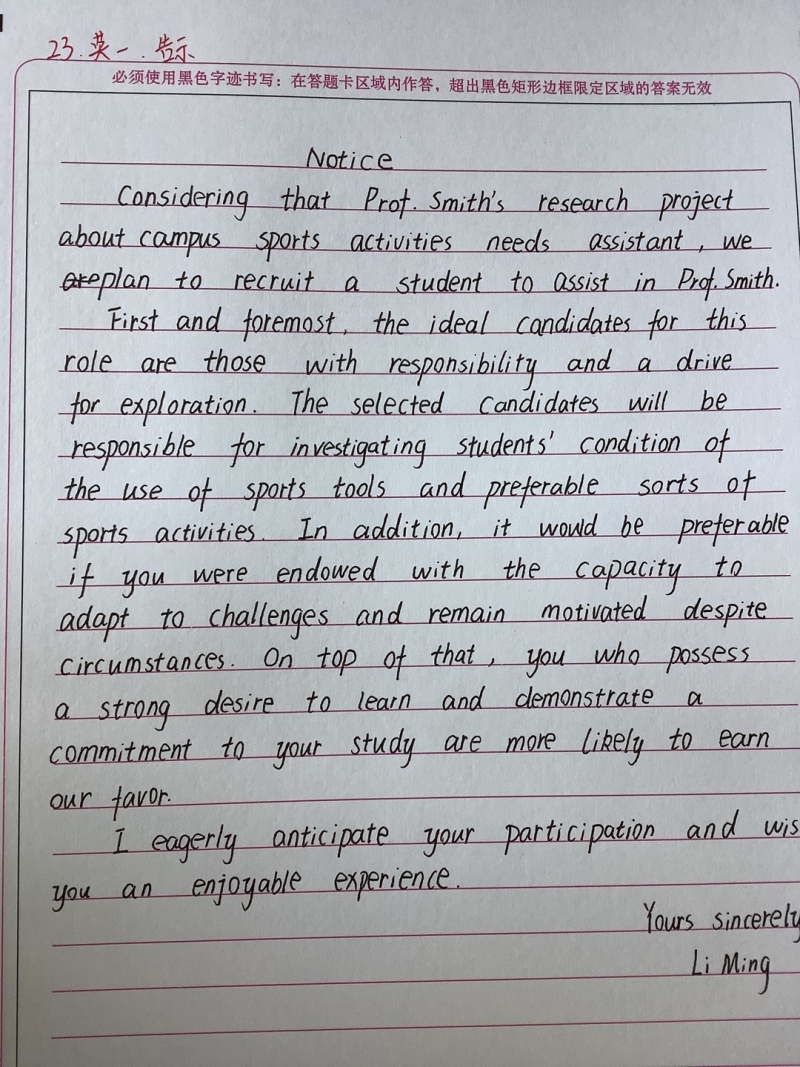 23.英一.告示
必须使用黑色字迹书写：在答题卡区域内作答，超出黑色矩形边框限定区域的答案无效
Notice
Considering that Prof. Smith's research project
about campus sports activities needs assistant, we
are plan to recruit a student to assist in Prof. Smith.
First and foremost, the ideal candidates for this
role are those with responsibility and a drive
for exploration. The selected candidates will be
responsible for investigating students' condition of
the use of sports tools and preferable sorts of
sports activities. In addition, it would be preferable
if you were endowed with the capacity to
adapt to challenges and remain motivated despite
circumstances. On top of that, you who possess
a strong desire to learn and demonstrate a
commitment to your study are more likely to earn
our favor.
I eagerly anticipate your participation and wis
you an enjoyable experience.
Yours sincerely
Li Ming